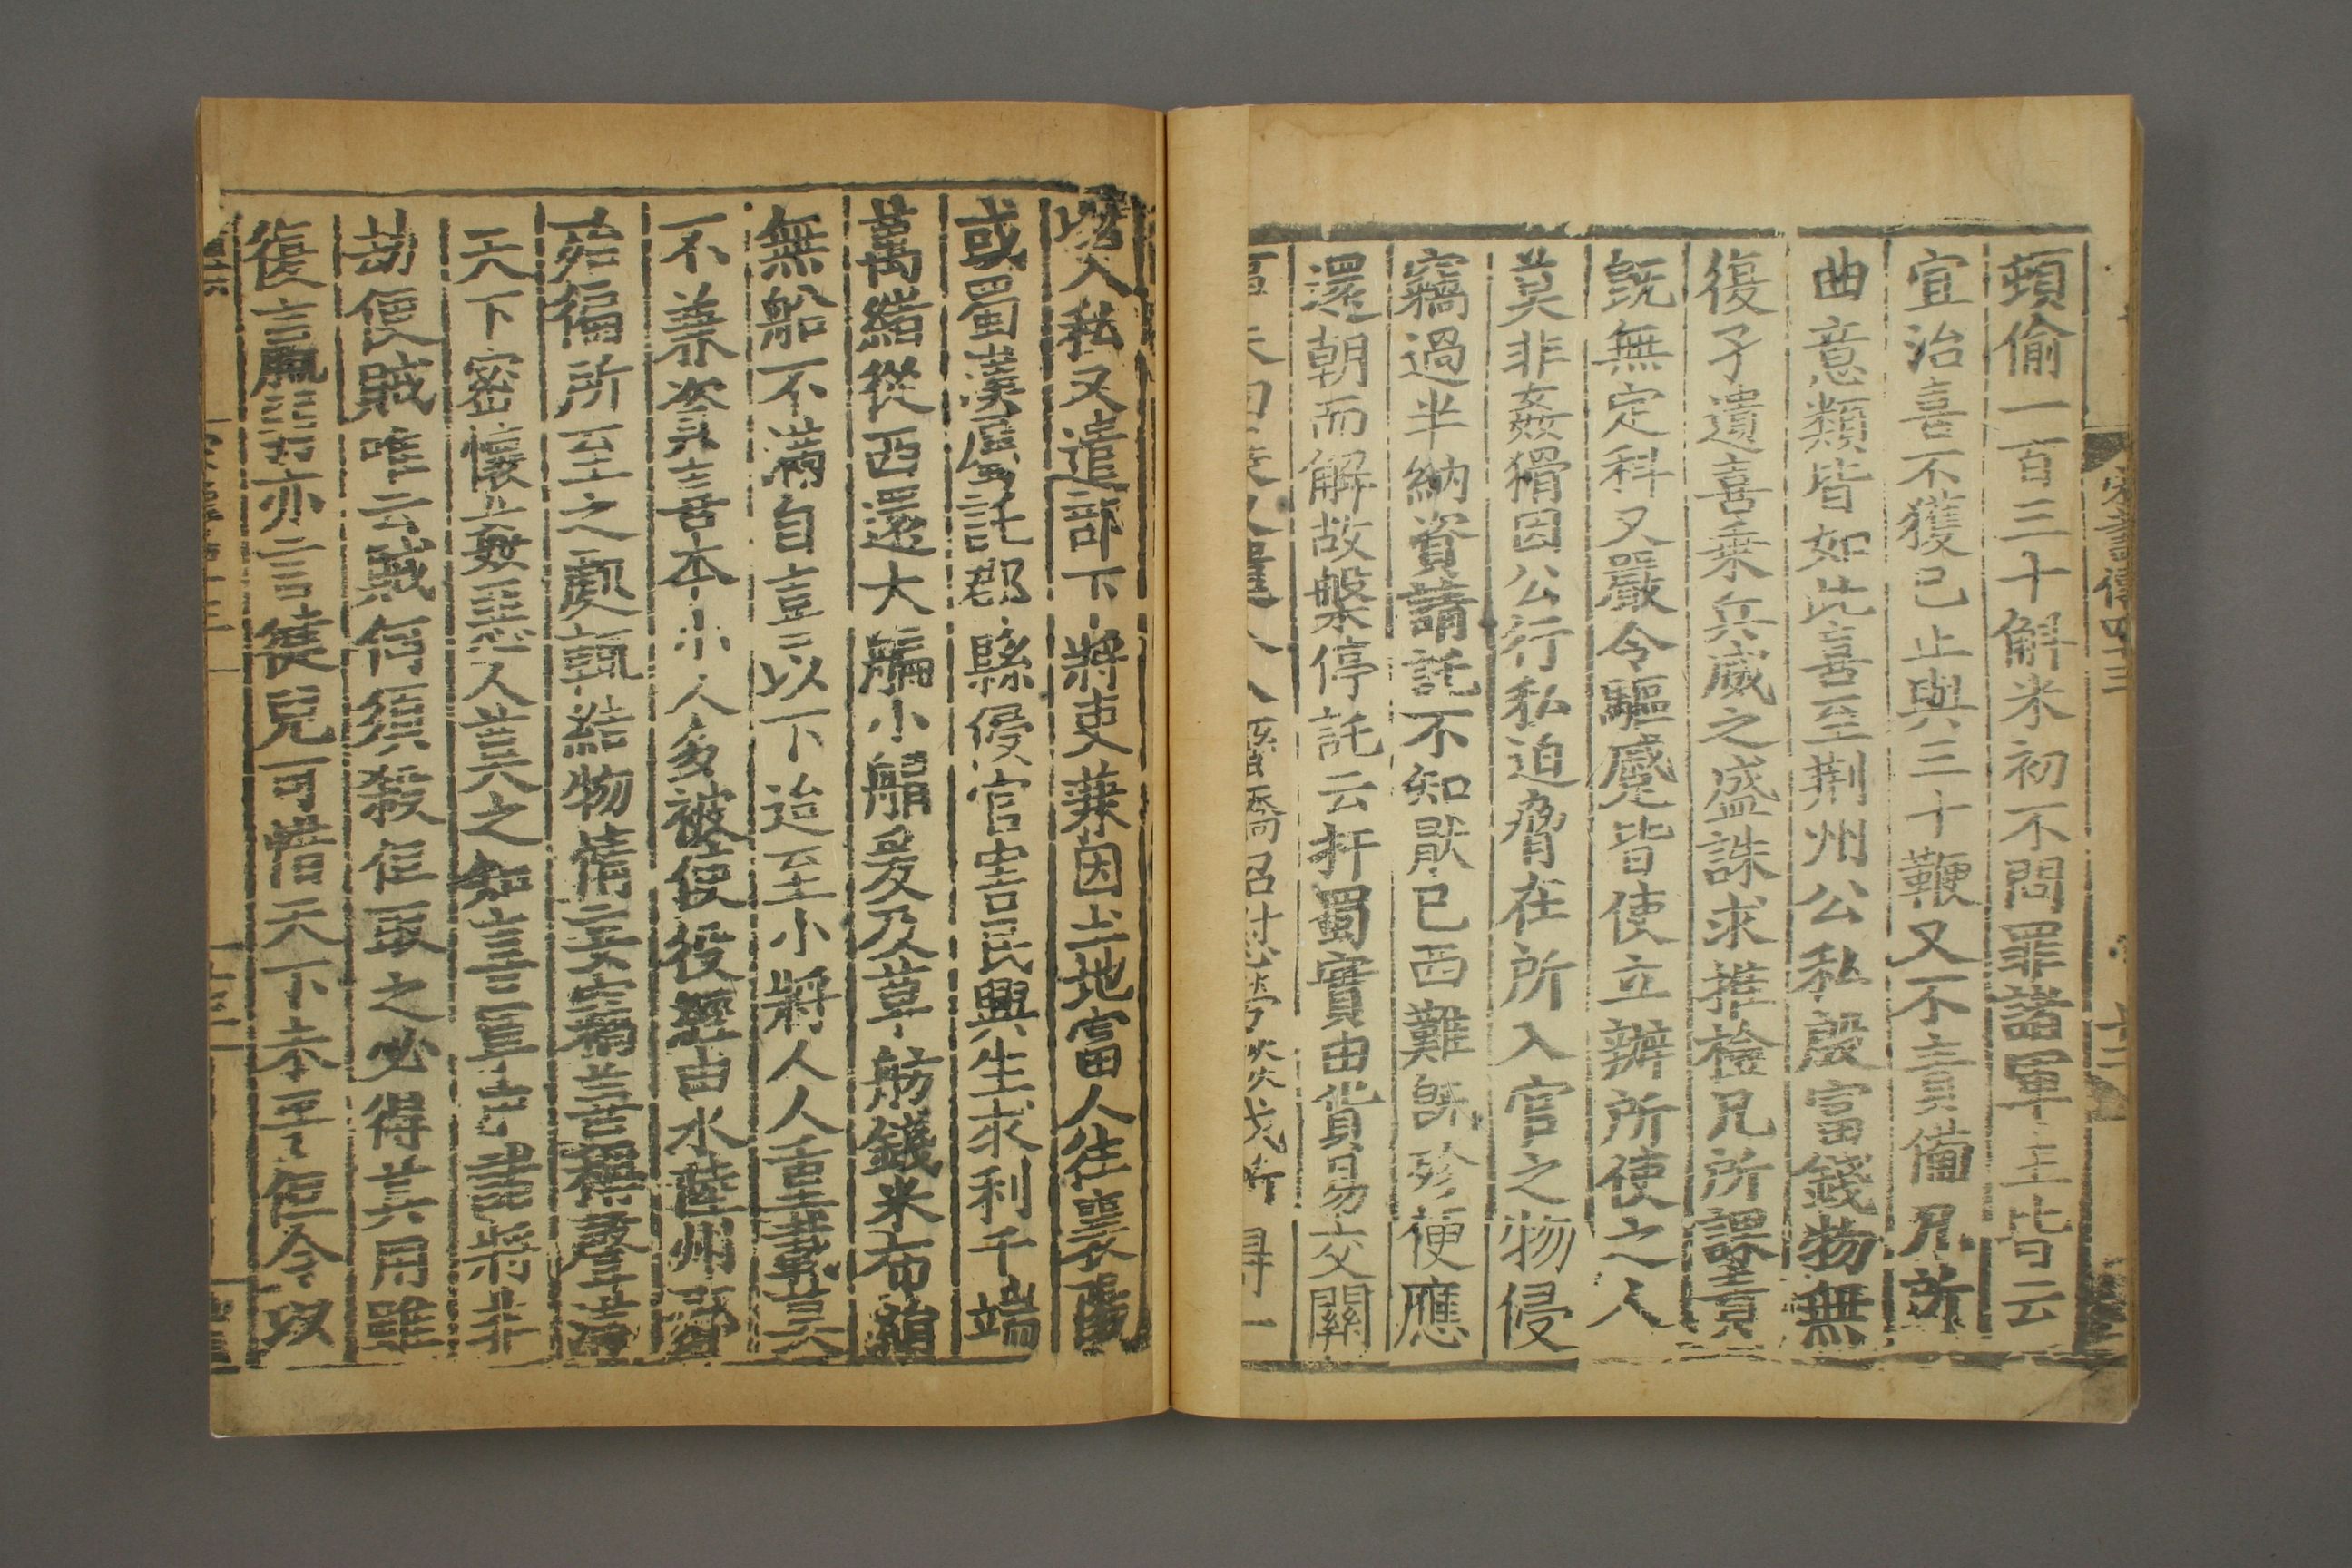 宋書傳四十三
頓偷一百三十斛米初不問罪諸軍主皆云
宜治喜不獲已止與三十鞭又不責備凡所
曲意類皆如此喜至荆州公私殷富錢物無
復孑遺喜乗兵威之盛誅求推檢凡所課責
既無定科又嚴令驅蹙皆使立辦所使之人
莫非姦猾因公行私迫脅在所入官之物侵
竊過半納資請託不知猒已西難既殄便應
還朝而解故槃停託云扞蜀實由貨易交關
以入私又遣部下將吏兼因土地富人往襄陽
或蜀漢屬託郡縣侵官害民興生求利千端
萬緒從西還大艑小艒爰及草舫錢米布絹
無船不滿自喜以下迨至小將人人重載莫
不兼資喜本小人多被使役經由水陸州郡
殆徧所至之處輒結物情妄竊善稱聲滿
天下密懷姦惡人莫之知喜軍中諸將非
劫便賊唯云賊何須殺但取之必得其用雖
復羸弱亦言健兒可惜天下未平但令以